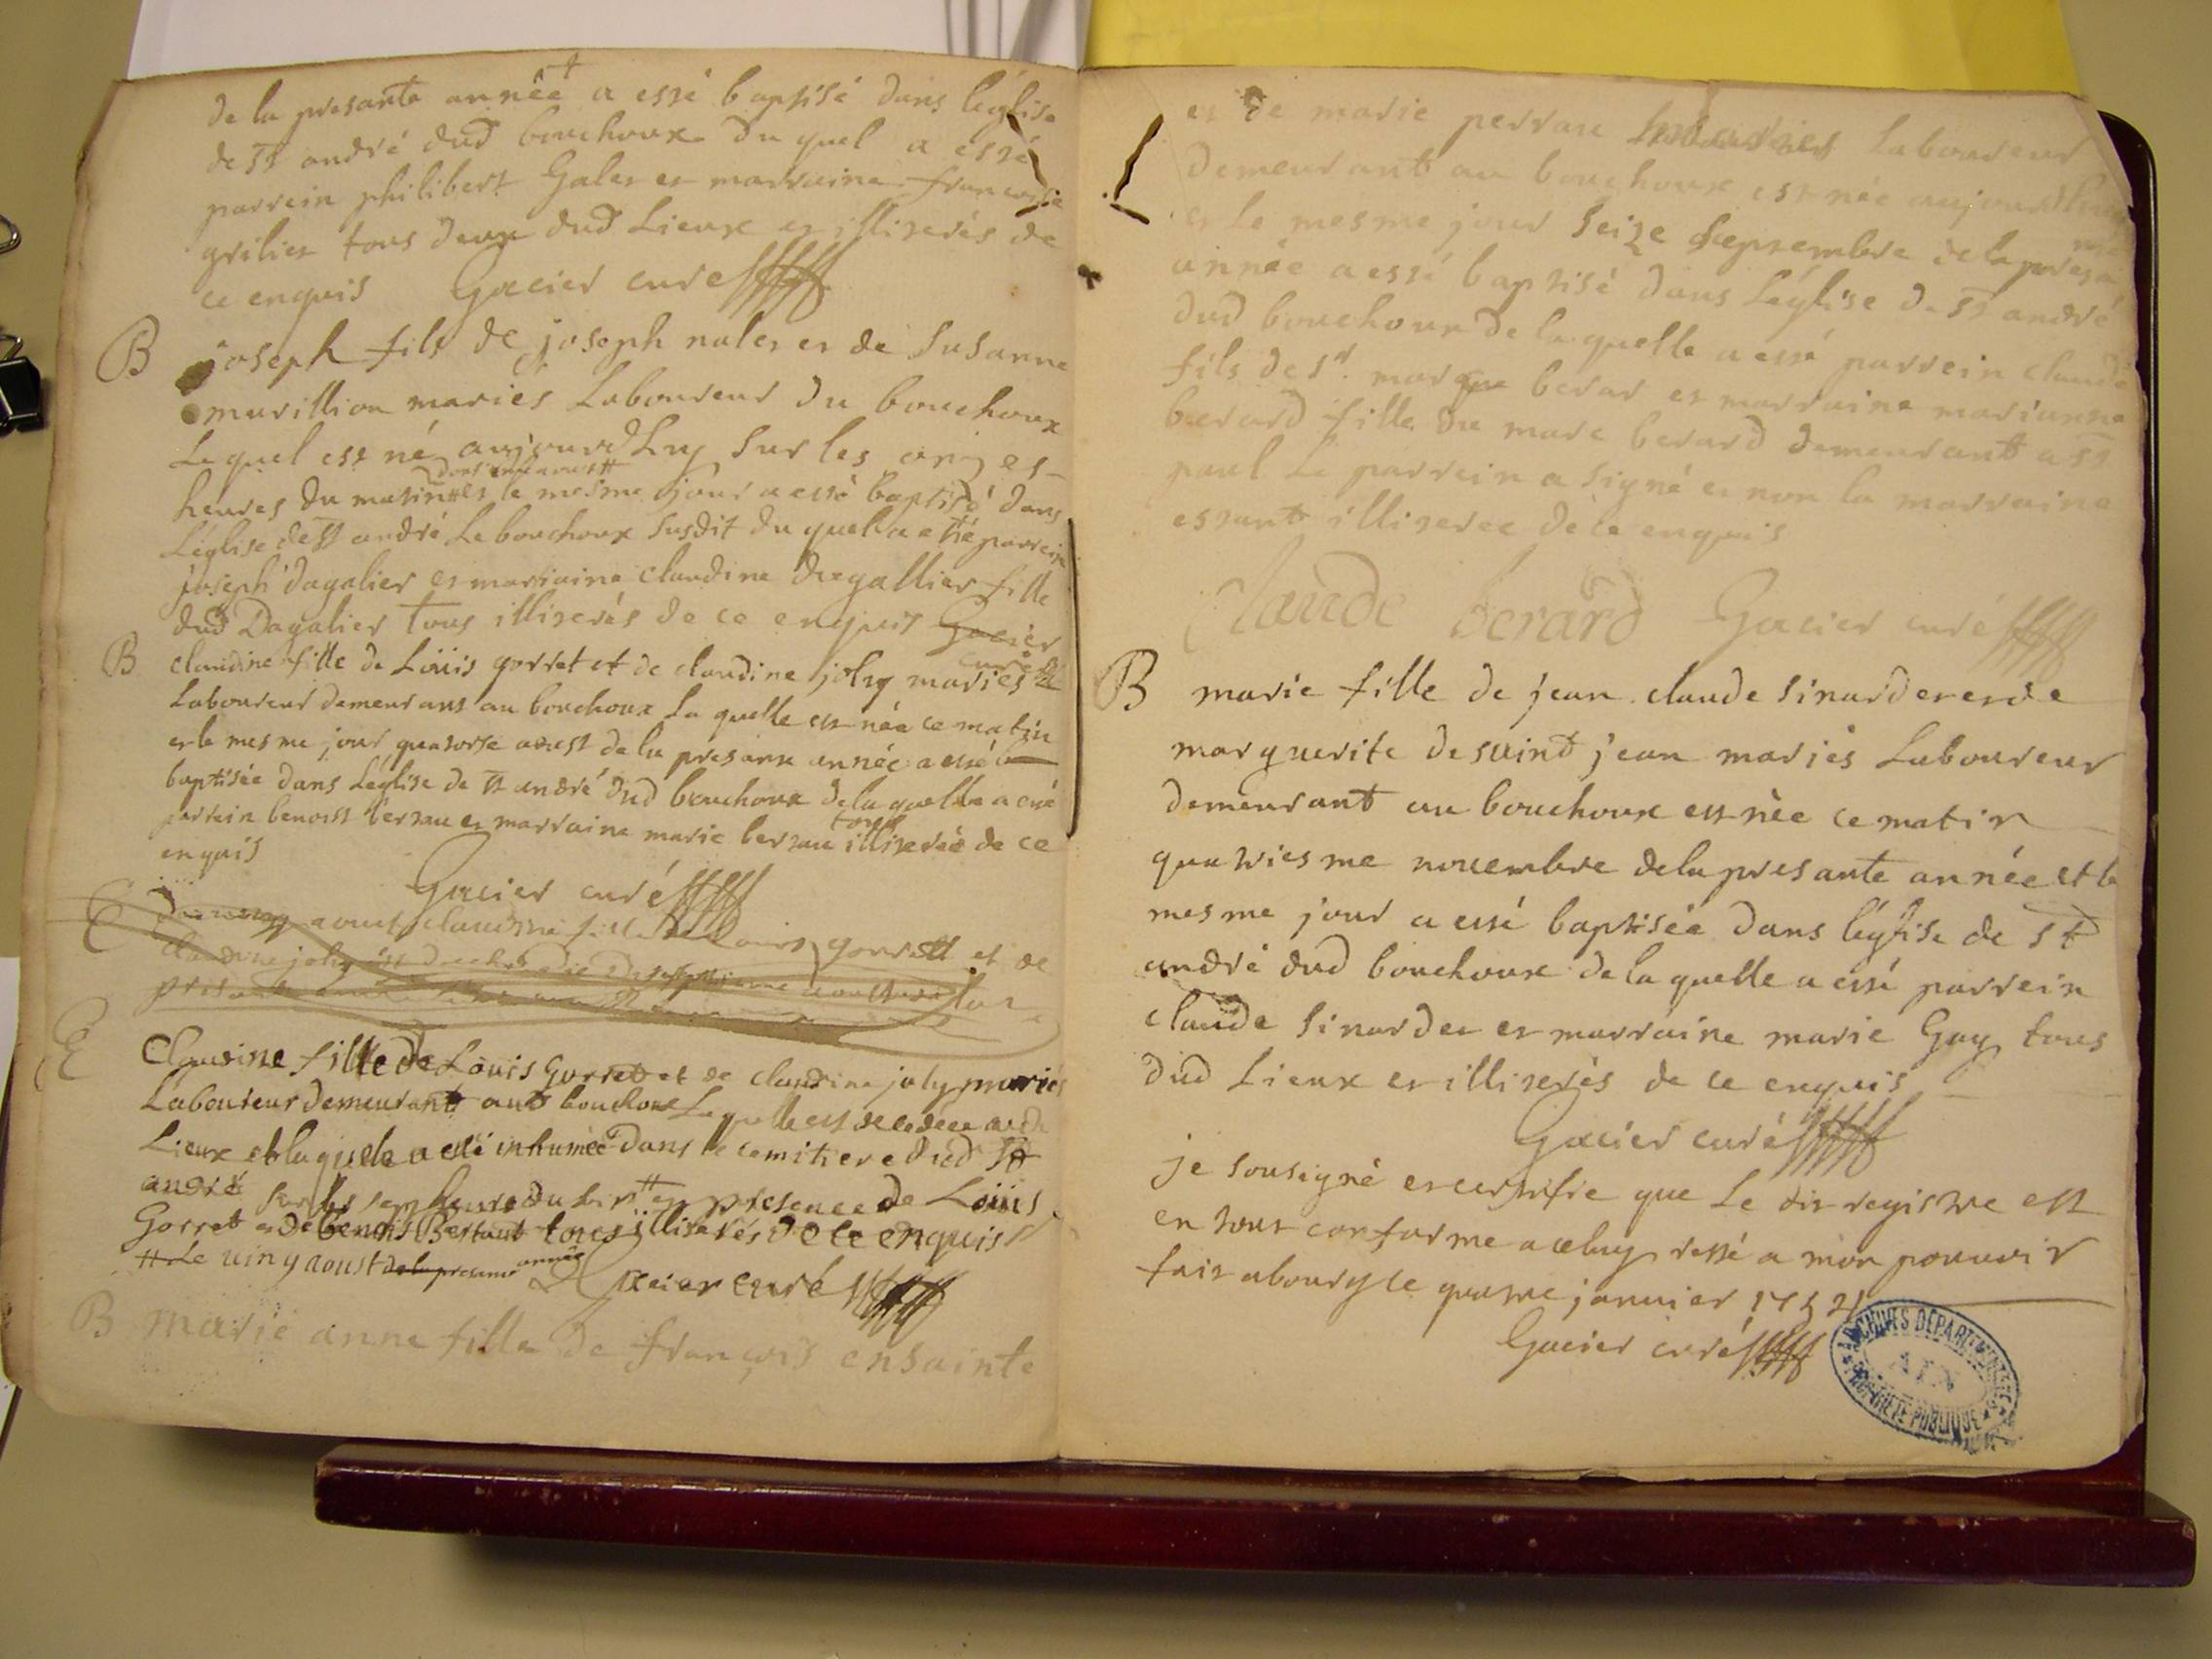 de la presante année a esté baptisé dans leglise
de st andré dud bouchoux du quel a esté
parrein philibert Galet et marraine francoise
grilier tous deux dud Lieux et illiterés de
ce enquis Gacier curé
B joseph fils de joseph nalet et de Susanne
murillion mariés Laboureur du bouchoux
Lequel est né aujourdhuy Sur les onz et
heures du matin et le mesme jour a esté baptisé dans
L'église de st andré Le bouchoux Susdit du quel a etté parrein
joseph dagalier et mariaine claudine dagallier fille
dud Dagalier tous illiterés de ce enquis Gacier
curé
B claudine fille de Loüis gorret et de claudine joly mariés
Laboureur demeurant au bouchoux La quelle est née ce matin
et le mesme jour quatorse aoust de la presante année a esté
baptisée dans Léglise de st andré dud bouchoux de la quelle a esté
parrein benoist bertau et marraine marie bertau tous illiterés de ce
enquis
Gacier curé
E aoust claudine fille de Louis gorrett et de
claudine joly
E Claudine fille de Loüis Gorret et de claudine joly mariés
Laboureur demeurant aud bouchoux Laquelle est decedee aud
Lieux et laquele a esté inhumée dans le cemitiere dud st
andré sur les sept heure du soir # en presence de Loüis
Gorret et de benoist Bertaut tous illiterés de ce enquis
# Le uing aoust de la presante année Gacier curé
B marie anne fille de françois ensainte
et de marie perrau mariés Laboureur
demeurant au bouchoux est née aujourdhuy
et le mesme jour Seize Septembre de la presante
année a esté baptisé dans Léglise de st andré
dud bouchoux de la quelle a esté parrein claude
fils de sr. marque berar et marraine marianne
berard fille du marc berard demeurant a st
paul Le parrein a signé et non la marraine
estant illiteree de ce enquis
Claude berard Gacier curé
B marie fille de jean claude Sinardet et de
marguerite de saint jean mariés Laboureur
demeurant au bouchoux est née ce matin
quatriesme novembre de la presante année et le
mesme jour a esté baptisée dans léglise de st
andré dud bouchoux de la quelle a esté parrein
claude Sinardet et marraine marie Guy tous
dud Lieux et illiterés de ce enquis
Gacier curé
je sousigné et certifie que Le dit registre est
en tout conforme a celuy resté a mon pouvoir
fait a bourg le quatre janvier
Gacier curé
ARCHIVES DEPARTEMENTALES
AIN
PROPRIETE PUBLIQUE